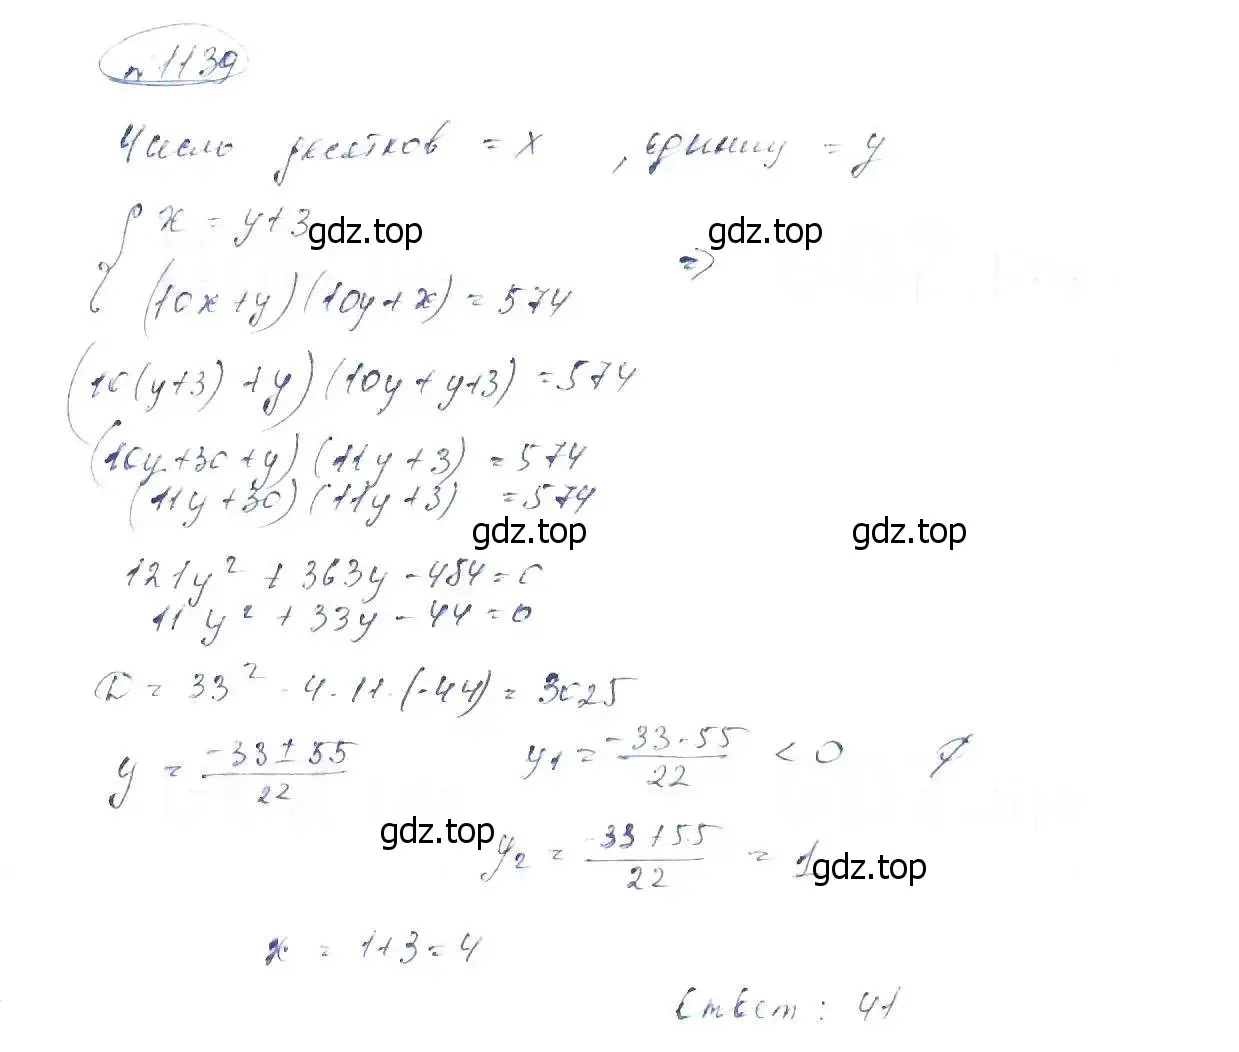 № 1139
Число десятков = x, единиц = y
{ x = y+3
gdz.top gdz.top
(10x+y)(10y+x) = 574 =>
(10(y+3)+y)(10y+y+3) = 574
(10y+30+y)(11y+3) = 574
(11y+30)(11y+3) = 574
gdz.top gdz.top
121y² + 363y - 484 = 0
11y² + 33y - 44 = 0
D = 33² - 4·11·(-44) = 3025
y = (-33 ± 55)/22 y₁ = (-33-55)/22 < 0 ∅
gdz.top
y₂ = (-33+55)/22 = 1
gdz.top
x = 1+3 = 4
Ответ: 41